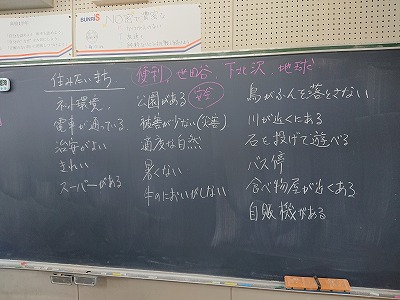 BUNRIS
住みたいまち
便利、世田谷、下北沢、地球
ネット環境、
電車が通っている
治安がよい
きれい
スーパーがある
公園がある
安全
被害が少ない(災害)
適度な自然
暑くない
牛のにおいがしない
鳥がふんを落とさない
川が近くにある
石を投げて遊べる
バス停
食べ物屋が近くある
自販機がある